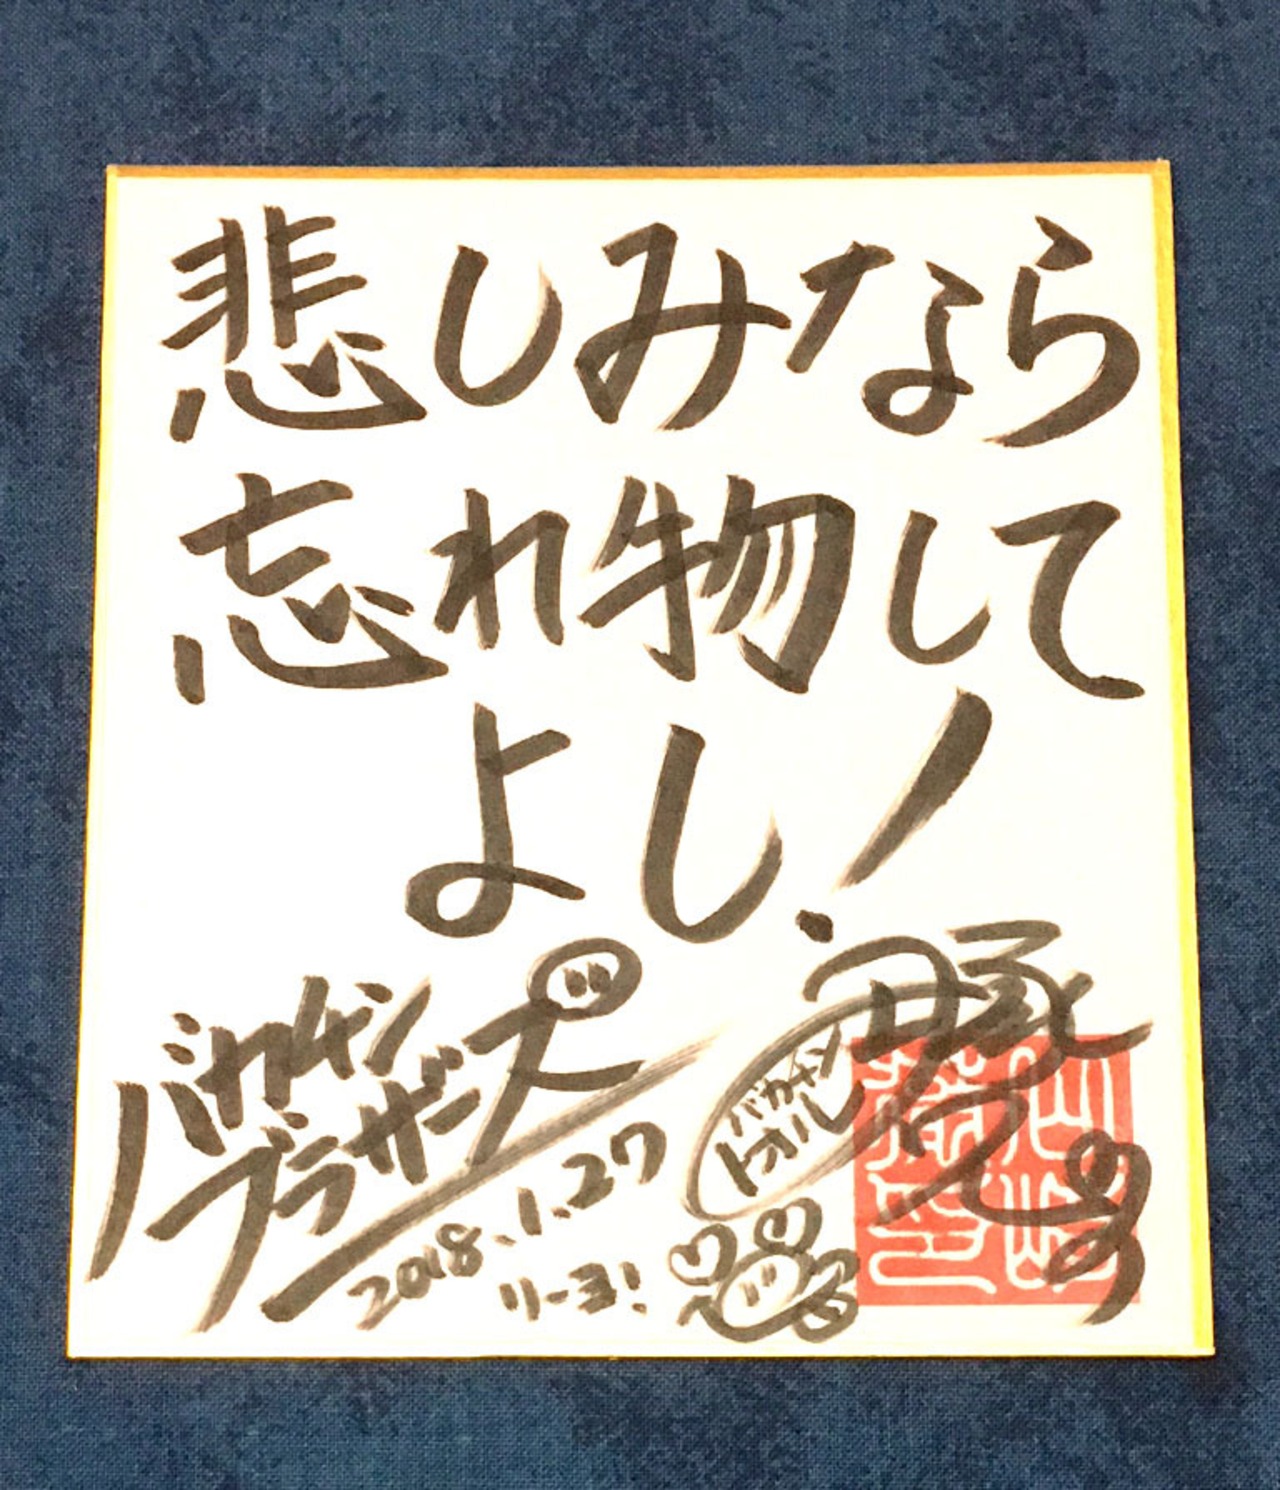 悲しみなら
忘れ物して
よし!
バカチン
ブラザーズ
2018.1.27
リーヨ!
バカチン
トオル